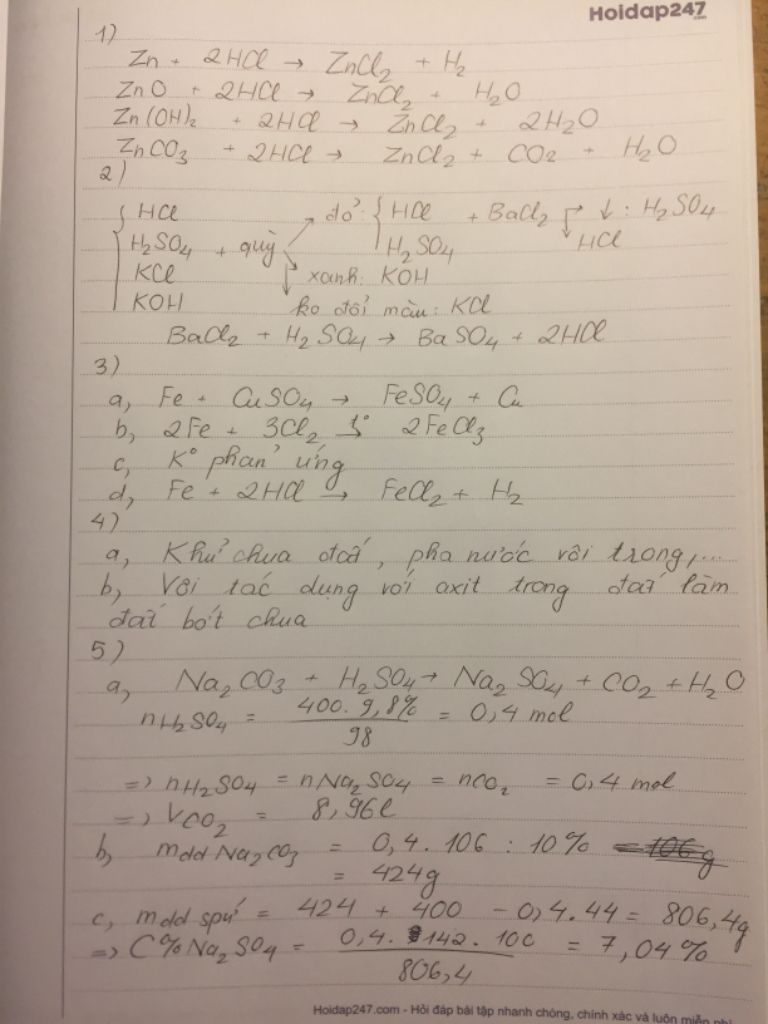 Hoidap247.com
1)
Zn + 2HCl → ZnCl₂ + H₂
ZnO + 2HCl → ZnCl₂ + H₂O
Zn(OH)₂ + 2HCl → ZnCl₂ + 2H₂O
ZnCO₃ + 2HCl → ZnCl₂ + CO₂ + H₂O
2)
HCl đỏ: { HCl + BaCl₂ ↓ : H₂SO₄
H₂SO₄ + quỳ H₂SO₄ HCl
KCl xanh: KOH
KOH ko đổi màu: KCl
BaCl₂ + H₂SO₄ → BaSO₄ + 2HCl
3)
a, Fe + CuSO₄ → FeSO₄ + Cu
b, 2Fe + 3Cl₂ t°→ 2FeCl₃
c, K° phản ứng
d, Fe + 2HCl → FeCl₂ + H₂
4)
a, Khử chua đất, pha nước vôi trong,...
b, Vôi tác dụng với axit trong đất làm
đất bớt chua
5)
a, Na₂CO₃ + H₂SO₄ → Na₂SO₄ + CO₂ + H₂O
nH₂SO₄ = 400.9,8% / 98 = 0,4 mol
=> nH₂SO₄ = nNa₂SO₄ = nCO₂ = 0,4 mol
=> VCO₂ = 8,96l
b, mdd Na₂CO₃ = 0,4.106 : 10%
= 424g
c, mdd spứ = 424 + 400 - 0,4.44 = 806,4g
=> C%Na₂SO₄ = 0,4.142.100 / 806,4 = 7,04%
Hoidap247.com - Hỏi đáp bài tập nhanh chóng, chính xác và luôn miễn phí